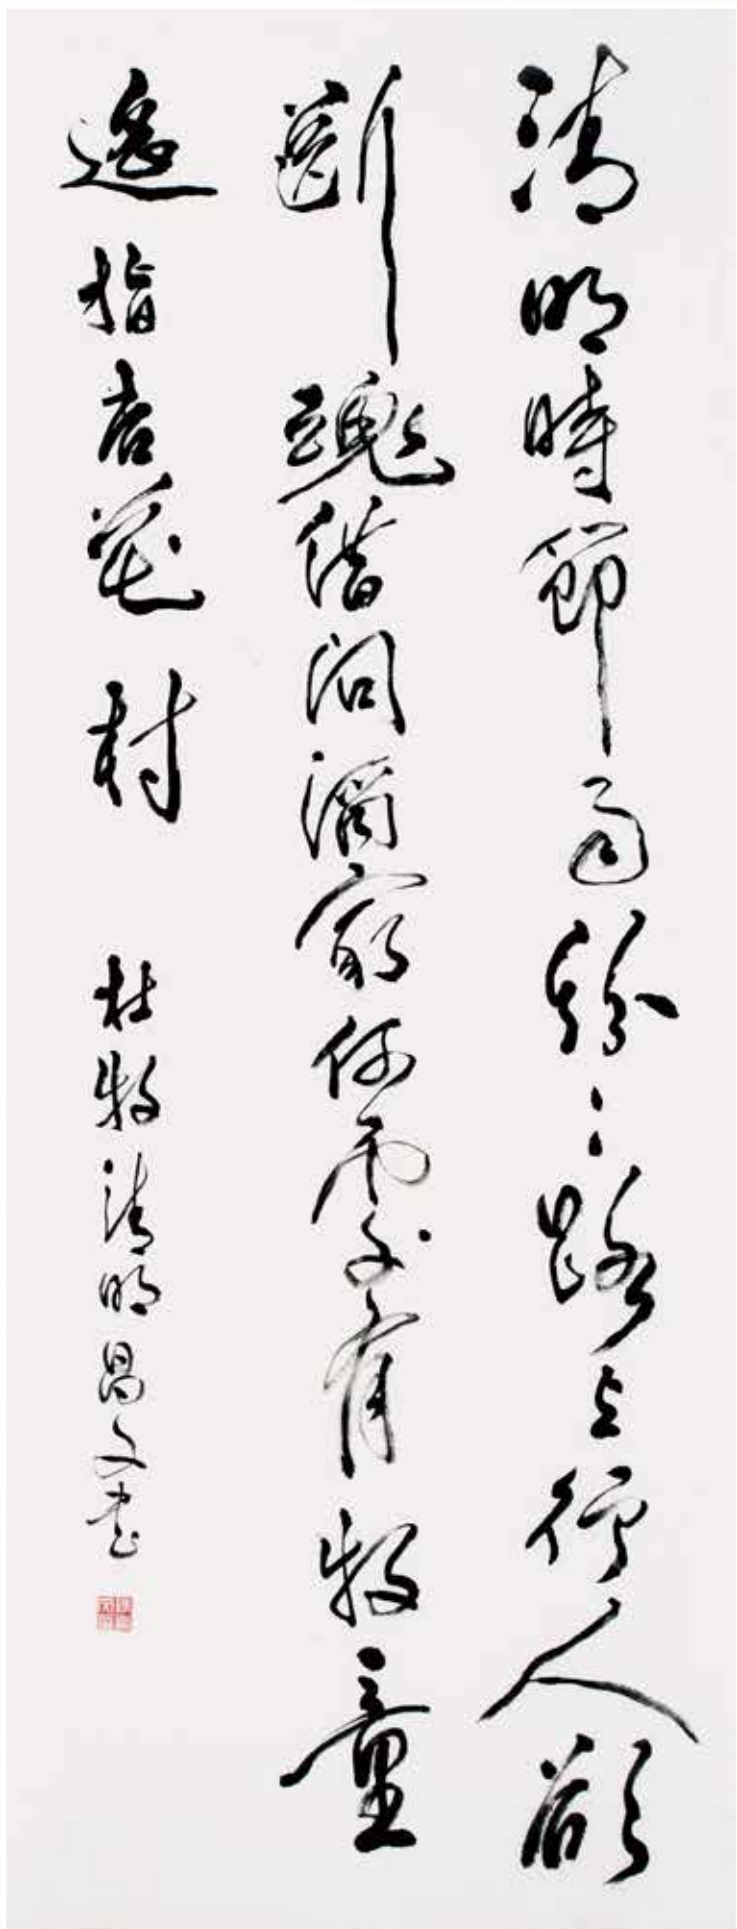 清明時節雨紛々路上行人欲
斷魂借問酒家何處有牧童
遙指杏花村 杜牧清明昌文書